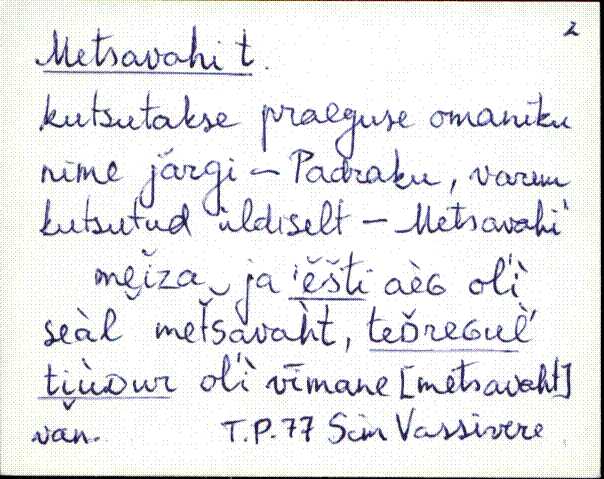 2
Metsavahi t.
kutsutakse praeguse omaniku
nime järgi – Padraku, varem
kutsutud üldiselt – Metsavahi
mẽiza ja ẽšti aèG olì
seàl metsavaht,
olì vīmane [metsavaht]
T.P. 77 Siim Vassivere